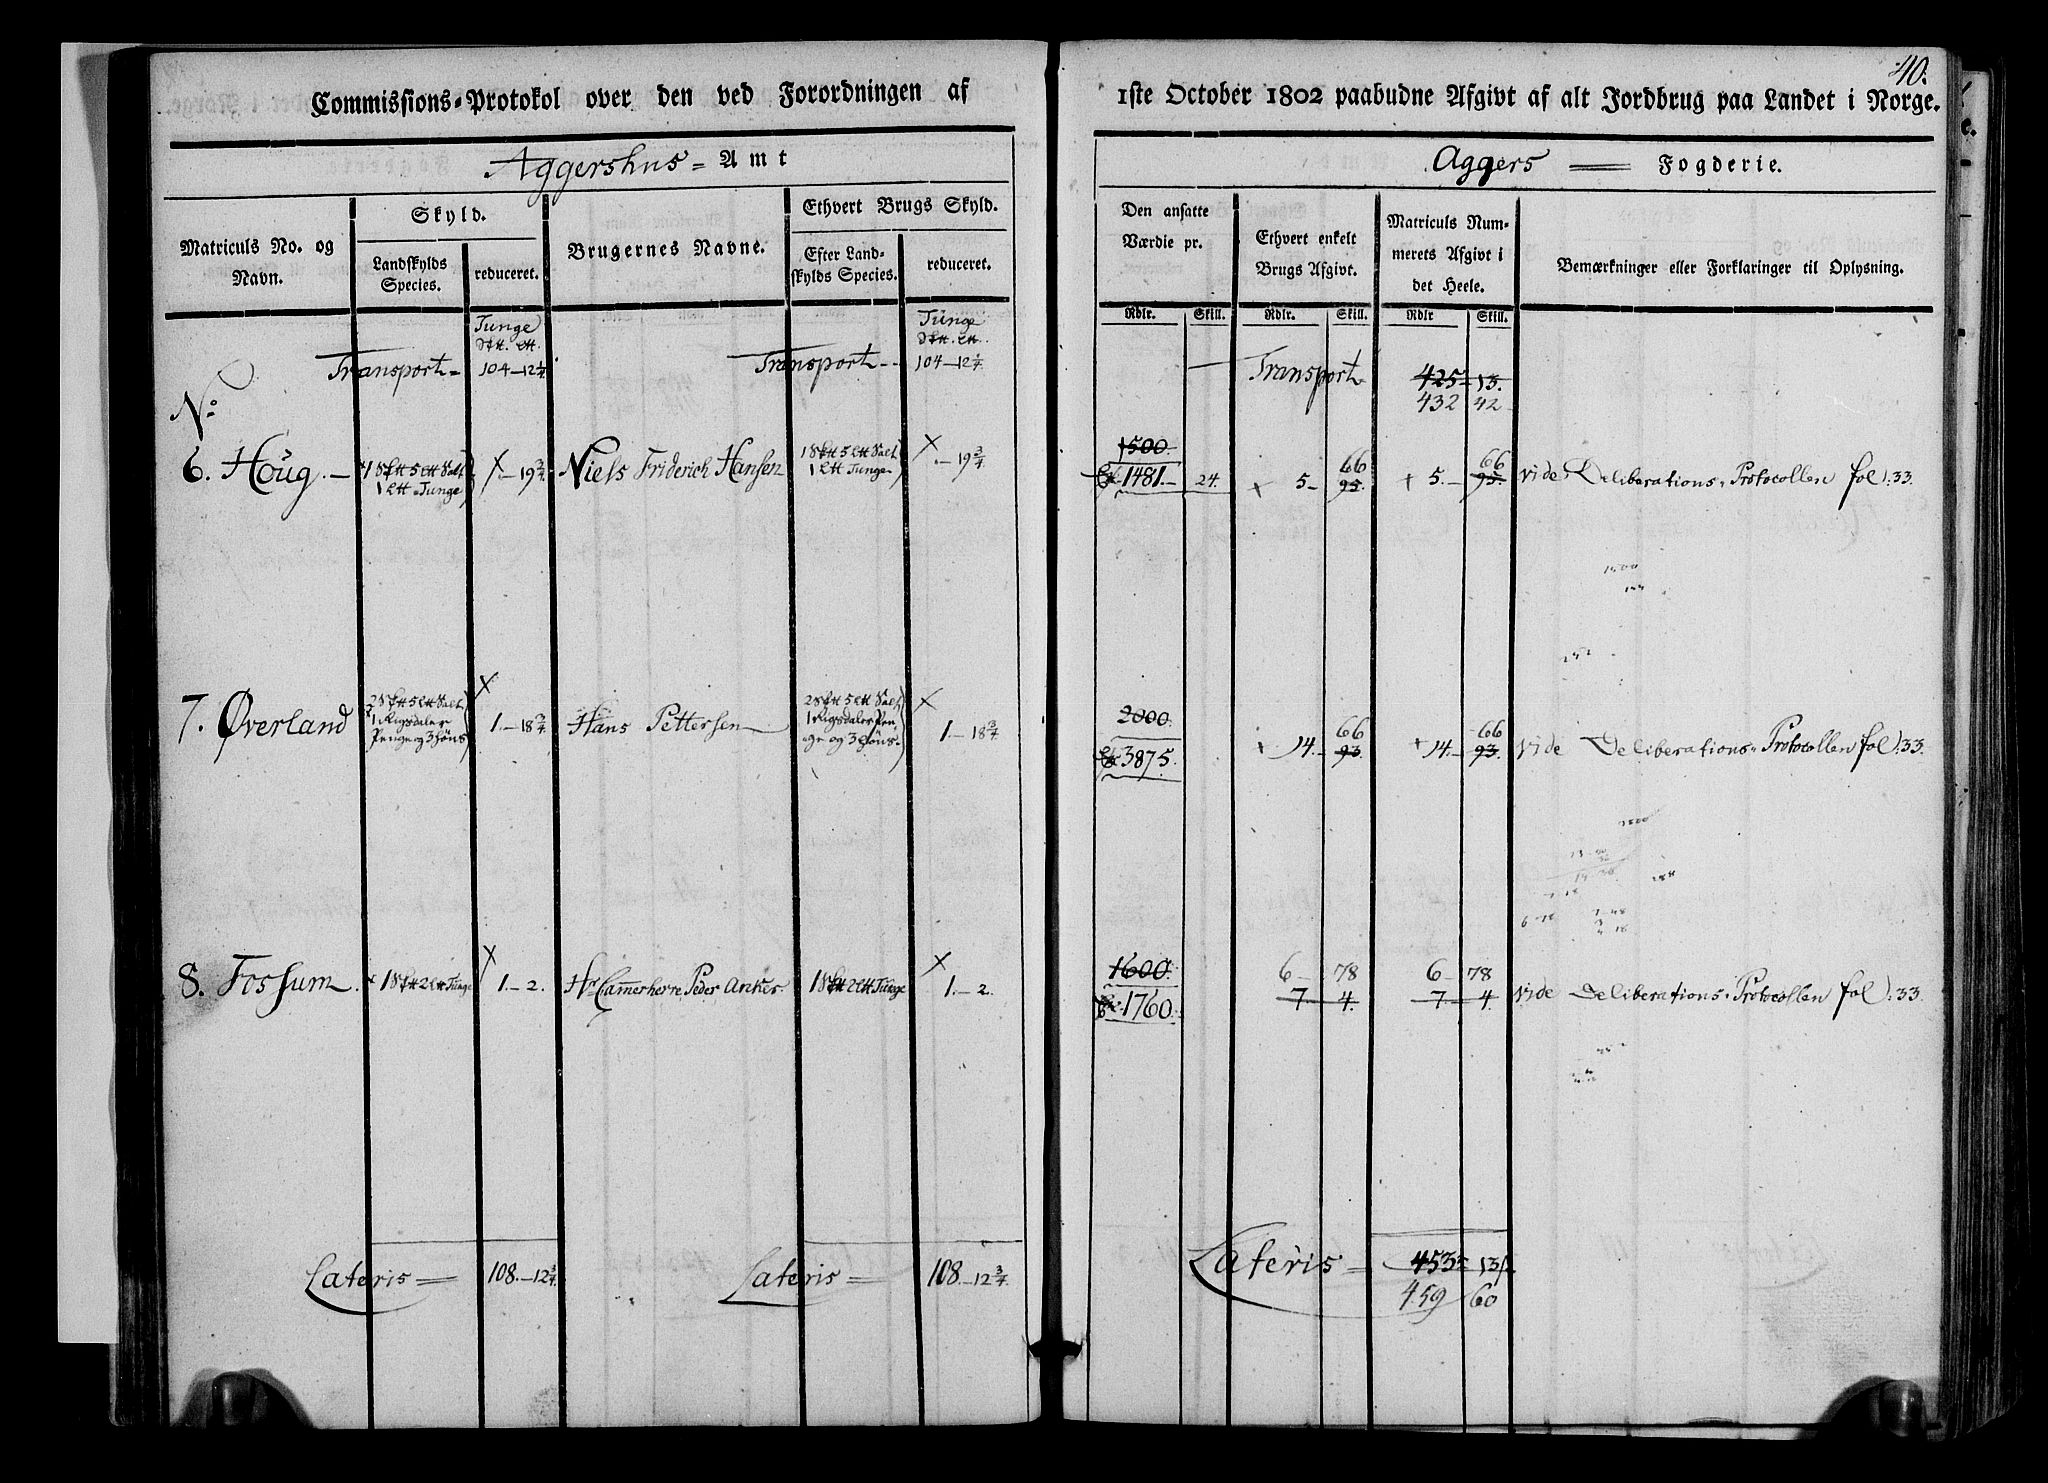 40.
Commissions-Protokol over den ved Forordningen af 1ste October 1802 paabudne Afgivt af alt Jordbrug paa Landet i Norge.
Aggershus = Amt
Aggers = Fogderie.
Matriculs No. og Navn.
Skyld.
Landskylds Species.
reduceret.
Brugernes Navne.
Ethvert Brugs Skyld.
Efter Landskylds Species.
reduceret.
Den ansatte Værdie pr.
Ethvert enkelt Brugs Afgivt.
Matriculs Nummerets Afgivt i det Heele.
Bemærkninger eller Forklaringer til Oplysning.
Rdlr. Skill. Rdlr. Skill. Rdlr Skill.
Tunge
Tunge
Transport = 104 — 12 1/4 Transport - - 104 — 12 1/4
— Transport 425 = 13.
432 42
No
6. Houg. — 1 S℔ 5 L℔ Salt
1 L℔ Tunge
— 19 3/4 Niels Friderich Hansen 1 S℔ 5 L℔ Salt
1 L℔ Tunge
— 19 3/4
1500
1481. — 24. 5 — 66 95. 5. — 66 95. vide Deliberations-Protocollen fol: 33.
7. Øverland 2 S℔ 5 L℔ Salt
1 Rigsdaler
Penge og 3 Høns
1. — 18 3/4 Hans Pettersen 2 S℔ 5 L℔ Salt
1 Rigsdaler Pen-
ge og 3 Høns
1. — 18 3/4
2000
3875. 14. — 66 93. 14. — 66 93. vide Deliberations-Protocollen fol: 33.
8. Fossum. 1 S℔ 2 L℔ Tunge 1. — 2. Hr Cammerherre Peder Anker. 1 S℔ 2 L℔ Tunge 1. — 2.
1600.
1760. 6 — 78 6 — 78
7 — 4. 7 — 4. vide Deliberations-Protocollen fol: 33.
Lateris = 108. — 12 3/4 Lateris = 108. — 12 3/4
Lateris = 453 = 13
459 60